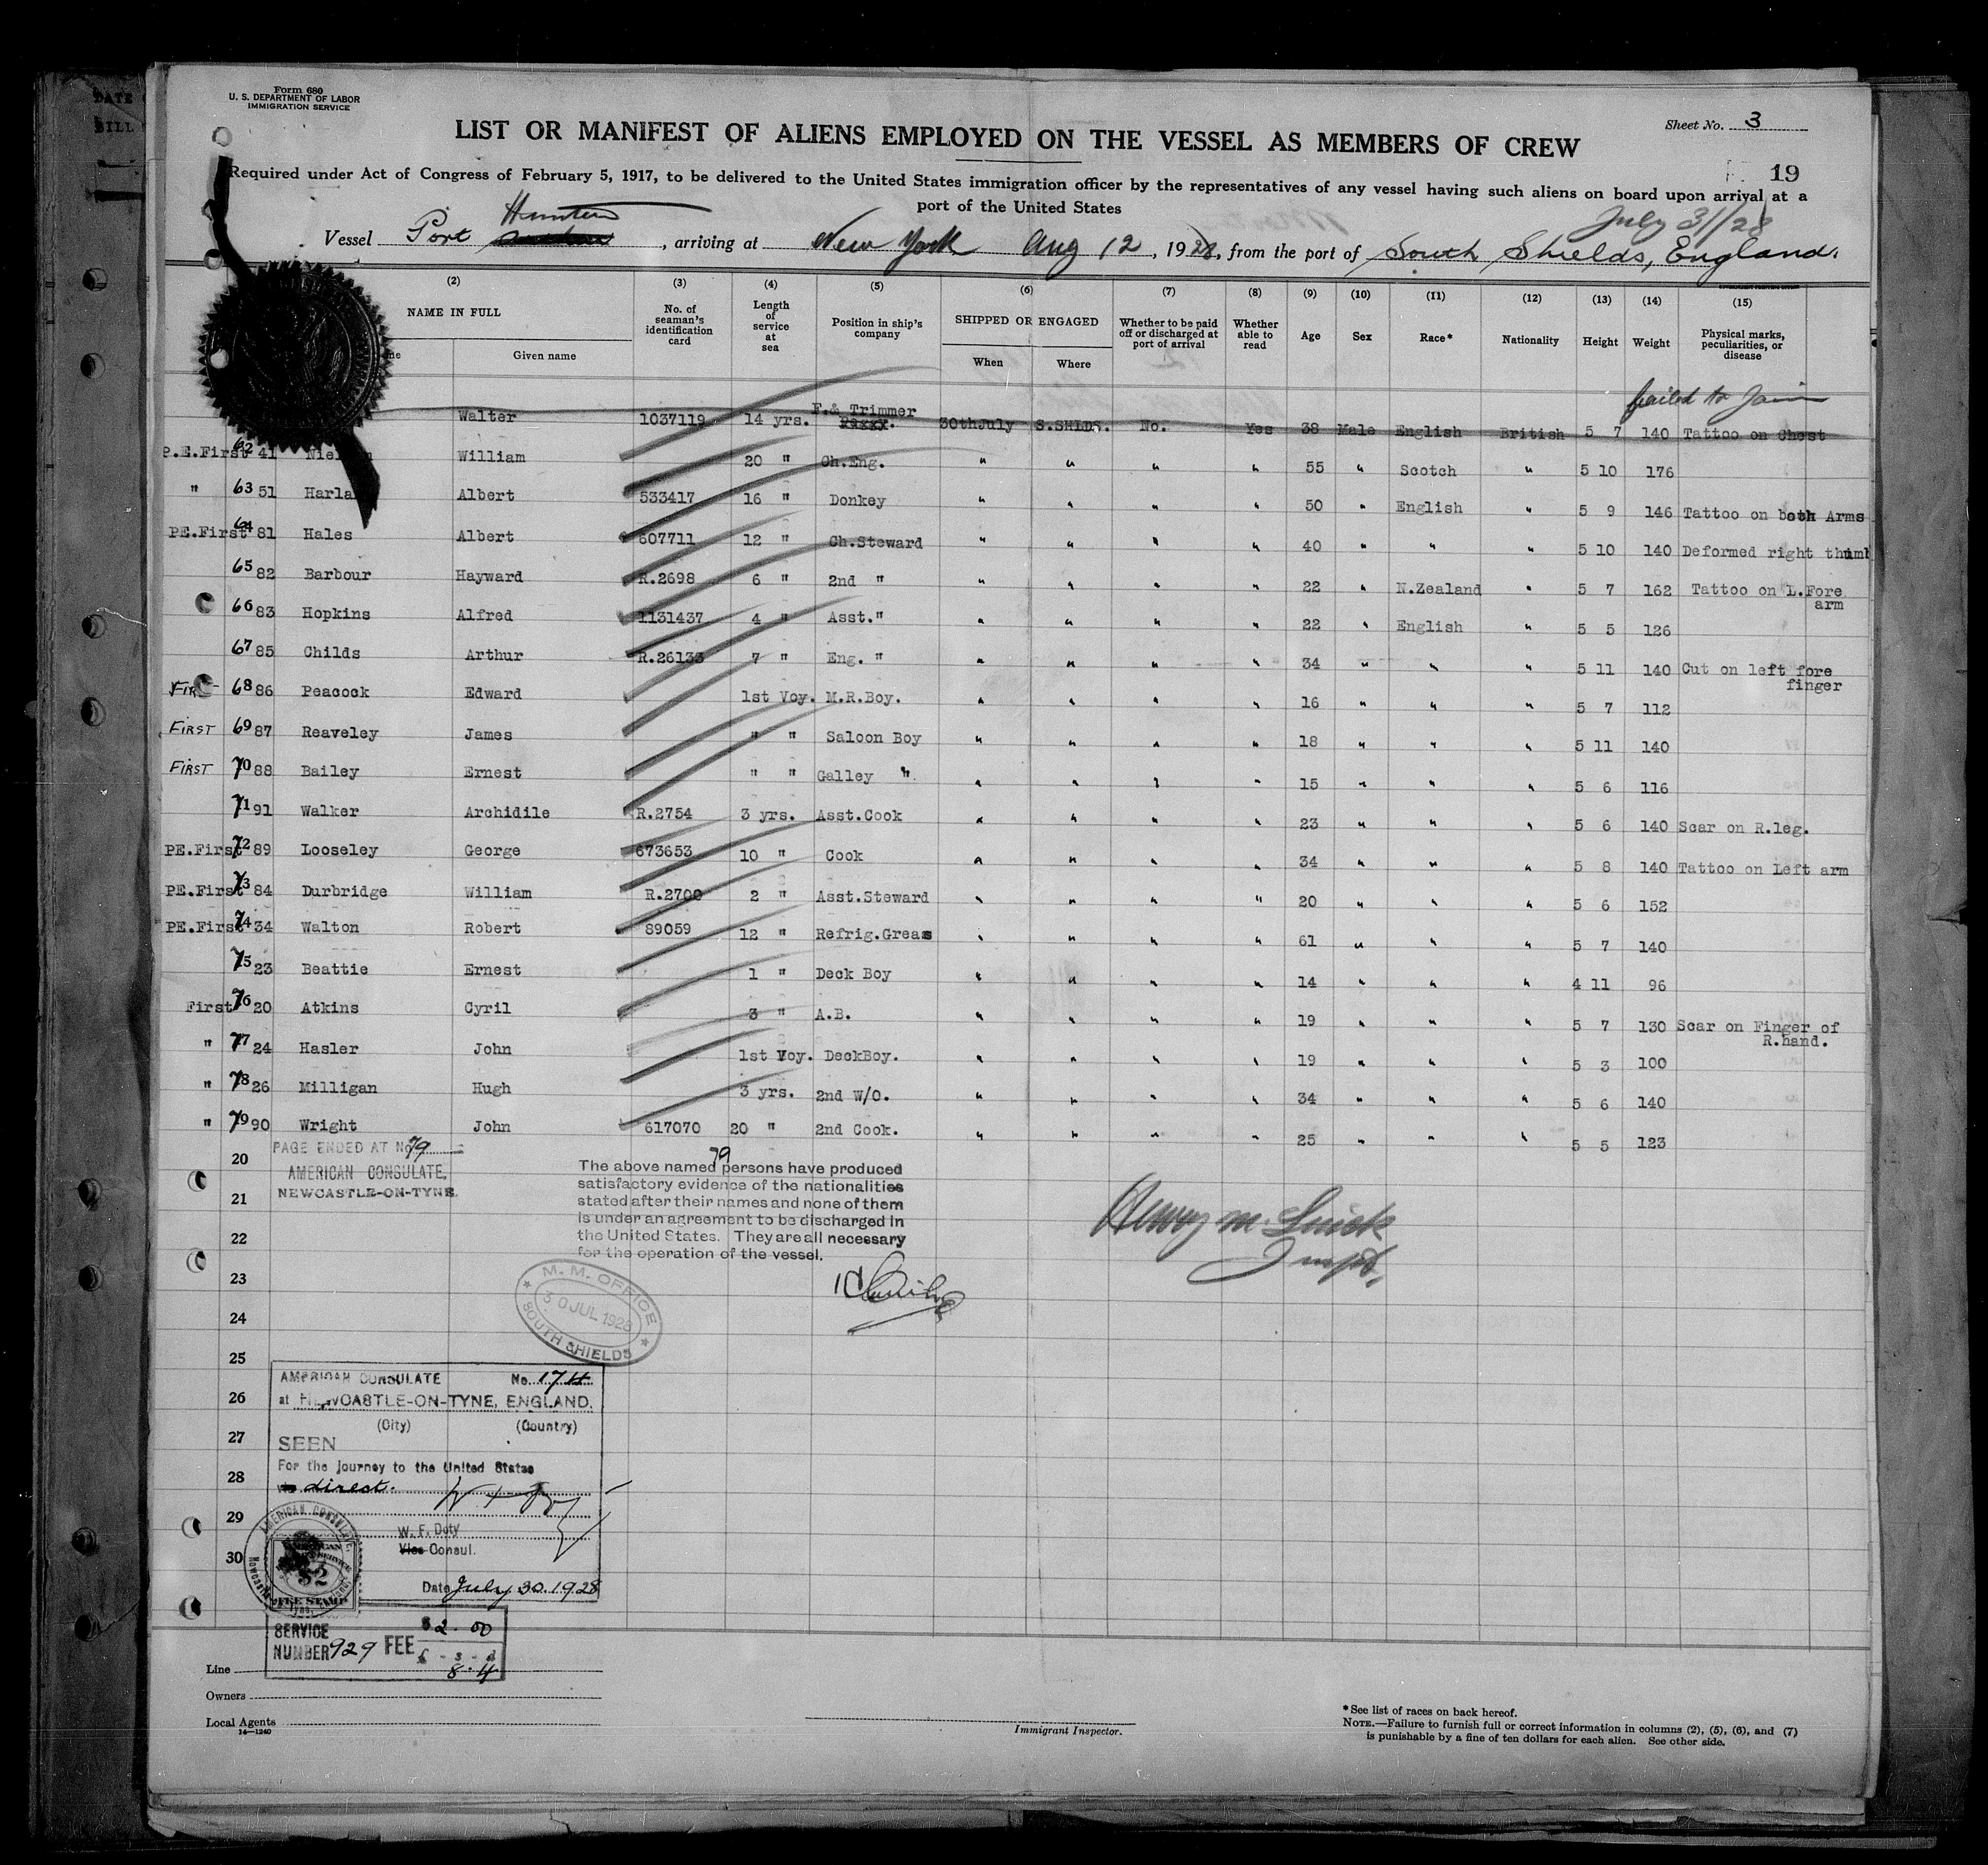 Form 680
U. S. DEPARTMENT OF LABOR
IMMIGRATION SERVICE
Sheet No. 3
LIST OR MANIFEST OF ALIENS EMPLOYED ON THE VESSEL AS MEMBERS OF CREW
19
Required under Act of Congress of February 5, 1917, to be delivered to the United States immigration officer by the representatives of any vessel having such aliens on board upon arrival at a
port of the United States
July 31/28
Vessel Port Hunter, arriving at New York Aug 12, 1928, from the port of South Shields, England.
(2) (3) (4) (5) (6) (7) (8) (9) (10) (11) (12) (13) (14) (15)
NAME IN FULL
Given name
No. of seaman's identification card
Length of service at sea
Position in ship's company
SHIPPED OR ENGAGED
When Where
Whether to be paid off or discharged at port of arrival
Whether able to read
Age Sex Race* Nationality Height Weight
Physical marks, peculiarities, or disease
failed to Join
Walter 1037119 14 yrs. F.& Trimmer 30thJuly S.SHLDS. No. Yes 38 Male English British 5 7 140 Tattoo on Chest
P.E.First 62 41 William 20 " Ch.Eng. " " " " 55 " Scotch " 5 10 176
" 63 51 Albert 533417 16 " Donkey " " " " 50 " English " 5 9 146 Tattoo on both Arms
PE.First 64 81 Hales Albert 607711 12 " Ch.Steward " " " " 40 " " " 5 10 140 Deformed right thumb
65 82 Barbour Hayward R.2698 6 " 2nd " " " " " 22 " N.Zealand " 5 7 162 Tattoo on L.Fore arm
66 83 Hopkins Alfred 1131437 4 " Asst." " " " " 22 " English " 5 5 126
67 85 Childs Arthur R.26133 7 " Eng. " " " " " 34 " " " 5 11 140 Cut on left fore finger
68 86 Peacock Edward 1st Voy. M.R.Boy. " " " " 16 " " " 5 7 112
FIRST 69 87 Reaveley James " " Saloon Boy " " " " 18 " " " 5 11 140
FIRST 70 88 Bailey Ernest " " Galley " " " " " 15 " " " 5 6 116
71 91 Walker Archidile R.2754 3 yrs. Asst.Cook " " " " 23 " " " 5 6 140 Scar on R.leg.
PE.First 72 89 Looseley George 673653 10 " Cook " " " " 34 " " " 5 8 140 Tattoo on Left arm
PE.First 73 84 Durbridge William R.2700 2 " Asst.Steward " " " " 20 " " " 5 6 152
PE.First 74 34 Walton Robert 89059 12 " Refrig.Greas " " " " 61 " " " 5 7 140
75 23 Beattie Ernest 1 " Deck Boy " " " " 14 " " " 4 11 96
First 76 20 Atkins Cyril 3 " A.B. " " " " 19 " " " 5 7 130 Scar on Finger of R.hand.
" 77 24 Hasler John 1st Voy. DeckBoy. " " " " 19 " " " 5 3 100
" 78 26 Milligan Hugh 3 yrs. 2nd W/O. " " " " 34 " " " 5 6 140
" 79 90 Wright John 617070 20 " 2nd Cook. " " " " 25 " " " 5 5 123
PAGE ENDED AT No 79
AMERICAN CONSULATE,
NEWCASTLE-ON-TYNE.
20
21
22
23
24
25
26
27
28
29
30
The above named 79 persons have produced
satisfactory evidence of the nationalities
stated after their names and none of them
is under an agreement to be discharged in
the United States. They are all necessary
for the operation of the vessel.
M. M. OFFICE
30 JUL 1928
SOUTH SHIELDS
AMERICAN CONSULATE No. 174
at NEWCASTLE-ON-TYNE, ENGLAND.
(City) (Country)
SEEN
For the journey to the United States
direct.
W. F. Doty
Vice Consul.
Date July 30.1928
AMERICAN CONSULATE
FEE STAMP
SERVICE NUMBER 929 FEE $2.00
£ - s - d
8.4
Line
Owners
Local Agents
14—1240
Immigrant Inspector.
*See list of races on back hereof.
NOTE.—Failure to furnish full or correct information in columns (2), (5), (6), and (7)
is punishable by a fine of ten dollars for each alien. See other side.